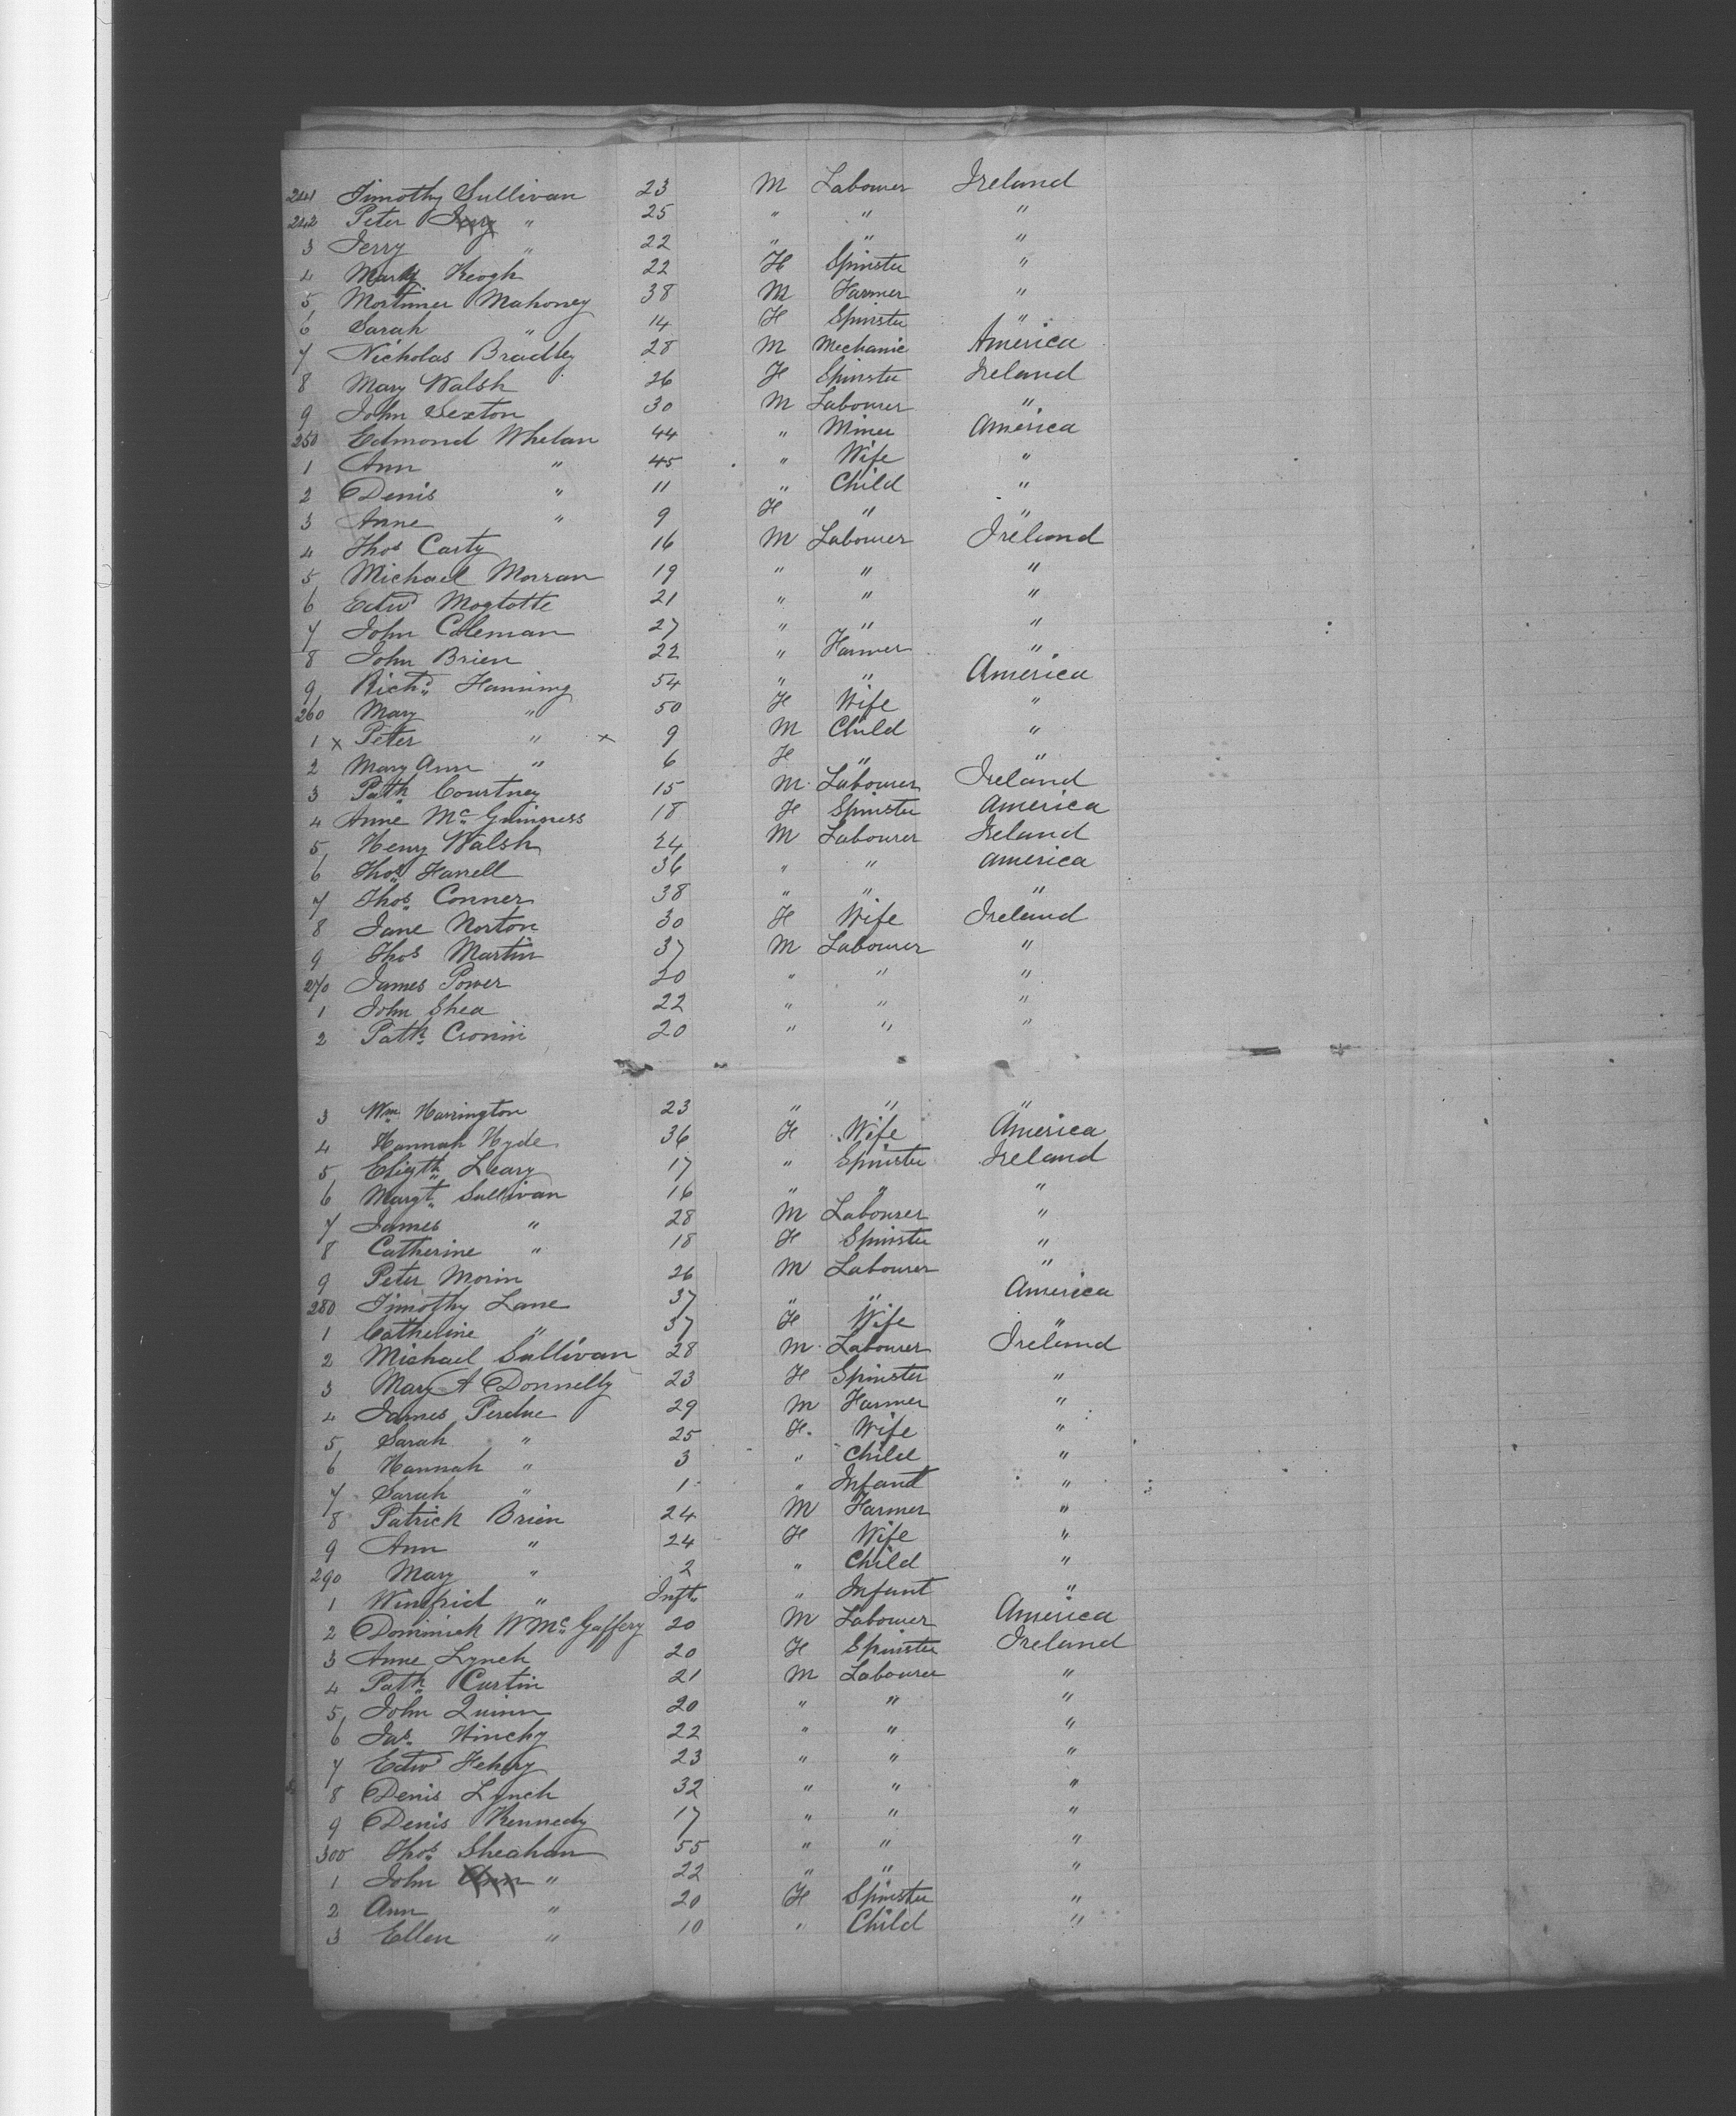 241 Timothy Sullivan 23 M Labourer Ireland
242 Peter Jerry " 25 " " "
3 Jerry " 22 " " "
4 Mary Keogh 22 F Spinster "
5 Mortimer Mahoney 38 M Farmer "
6 Sarah " 14 F Spinster "
7 Nicholas Bradley 28 M Mechanic America
8 Mary Walsh 26 F Spinster Ireland
9 John Sexton 30 M Labourer "
250 Edmond Whelan 44 " Miner America
1 Ann " 45 " Wife "
2 Denis " 11 " Child "
3 Anne " 9 F " "
4 Thos Carty 16 M Labourer Ireland
5 Michael Morran 19 " " "
6 Edwd 21 " " "
7 John Coleman 27 " " "
8 John Brien 22 " Farmer "
9 Richd Fanning 54 " " America
260 Mary " 50 F Wife "
1 x Peter " x 9 M Child "
2 Mary Ann " 6 F " "
3 Patk Courtney 15 M Labourer Ireland
4 Anne Mc Guinness 18 F Spinster America
5 Henry Walsh 24 M Labourer Ireland
6 Thos Farrell 36 " " America
7 Thos Conner 38 " " "
8 Jane Norton 30 F Wife Ireland
9 Thos Martin 37 M Labourer "
270 James Power 20 " " "
1 John Shea 22 " " "
2 Patk Cronin 20 " " "
3 Wm Harrington 23 " " "
4 Hannah Hyde 36 F Wife America
5 Elizth Leary 17 " Spinster Ireland
6 Margt Sullivan 16 " " "
7 James " 28 M Labourer "
8 Catherine " 18 F Spinster "
9 Peter Morin 26 M Labourer "
280 Timothy Lane 37 " " America
1 Catherine " 37 F Wife "
2 Michael Sullivan 28 M Labourer Ireland
3 Mary A Donnelly 23 F Spinster "
4 James Perdue 29 M Farmer "
5 Sarah " 25 F. Wife "
6 Hannah " 3 " Child "
7 Sarah " 1 " Infant "
8 Patrick Brien 24 M Farmer "
9 Ann " 24 F Wife "
290 Mary " 2 " Child "
1 Winifrid " Inft " Infant "
2 Dominick W Mc Gaffery 20 M Labourer America
3 Anne Lynch 20 F Spinster Ireland
4 Patk Curtin 21 M Labourer "
5 John Quinn 20 " " "
6 Jas Hinchy 22 " " "
7 Edwd 23 " " "
8 Denis Lynch 32 " " "
9 Denis Kennedy 17 " " "
300 Thos Sheahan 55 " " "
1 John Ann " 22 " " "
2 Ann " 20 F Spinster "
3 Ellen " 10 " Child "